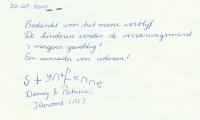 20-08-2010
Bedankt von het mooie verblijf.
De kinderen vonden de verrassingsmand
's morgens geweldig!
Een aanrader von iedereen!
Danny & Patricia,
Ittervoort (NL)